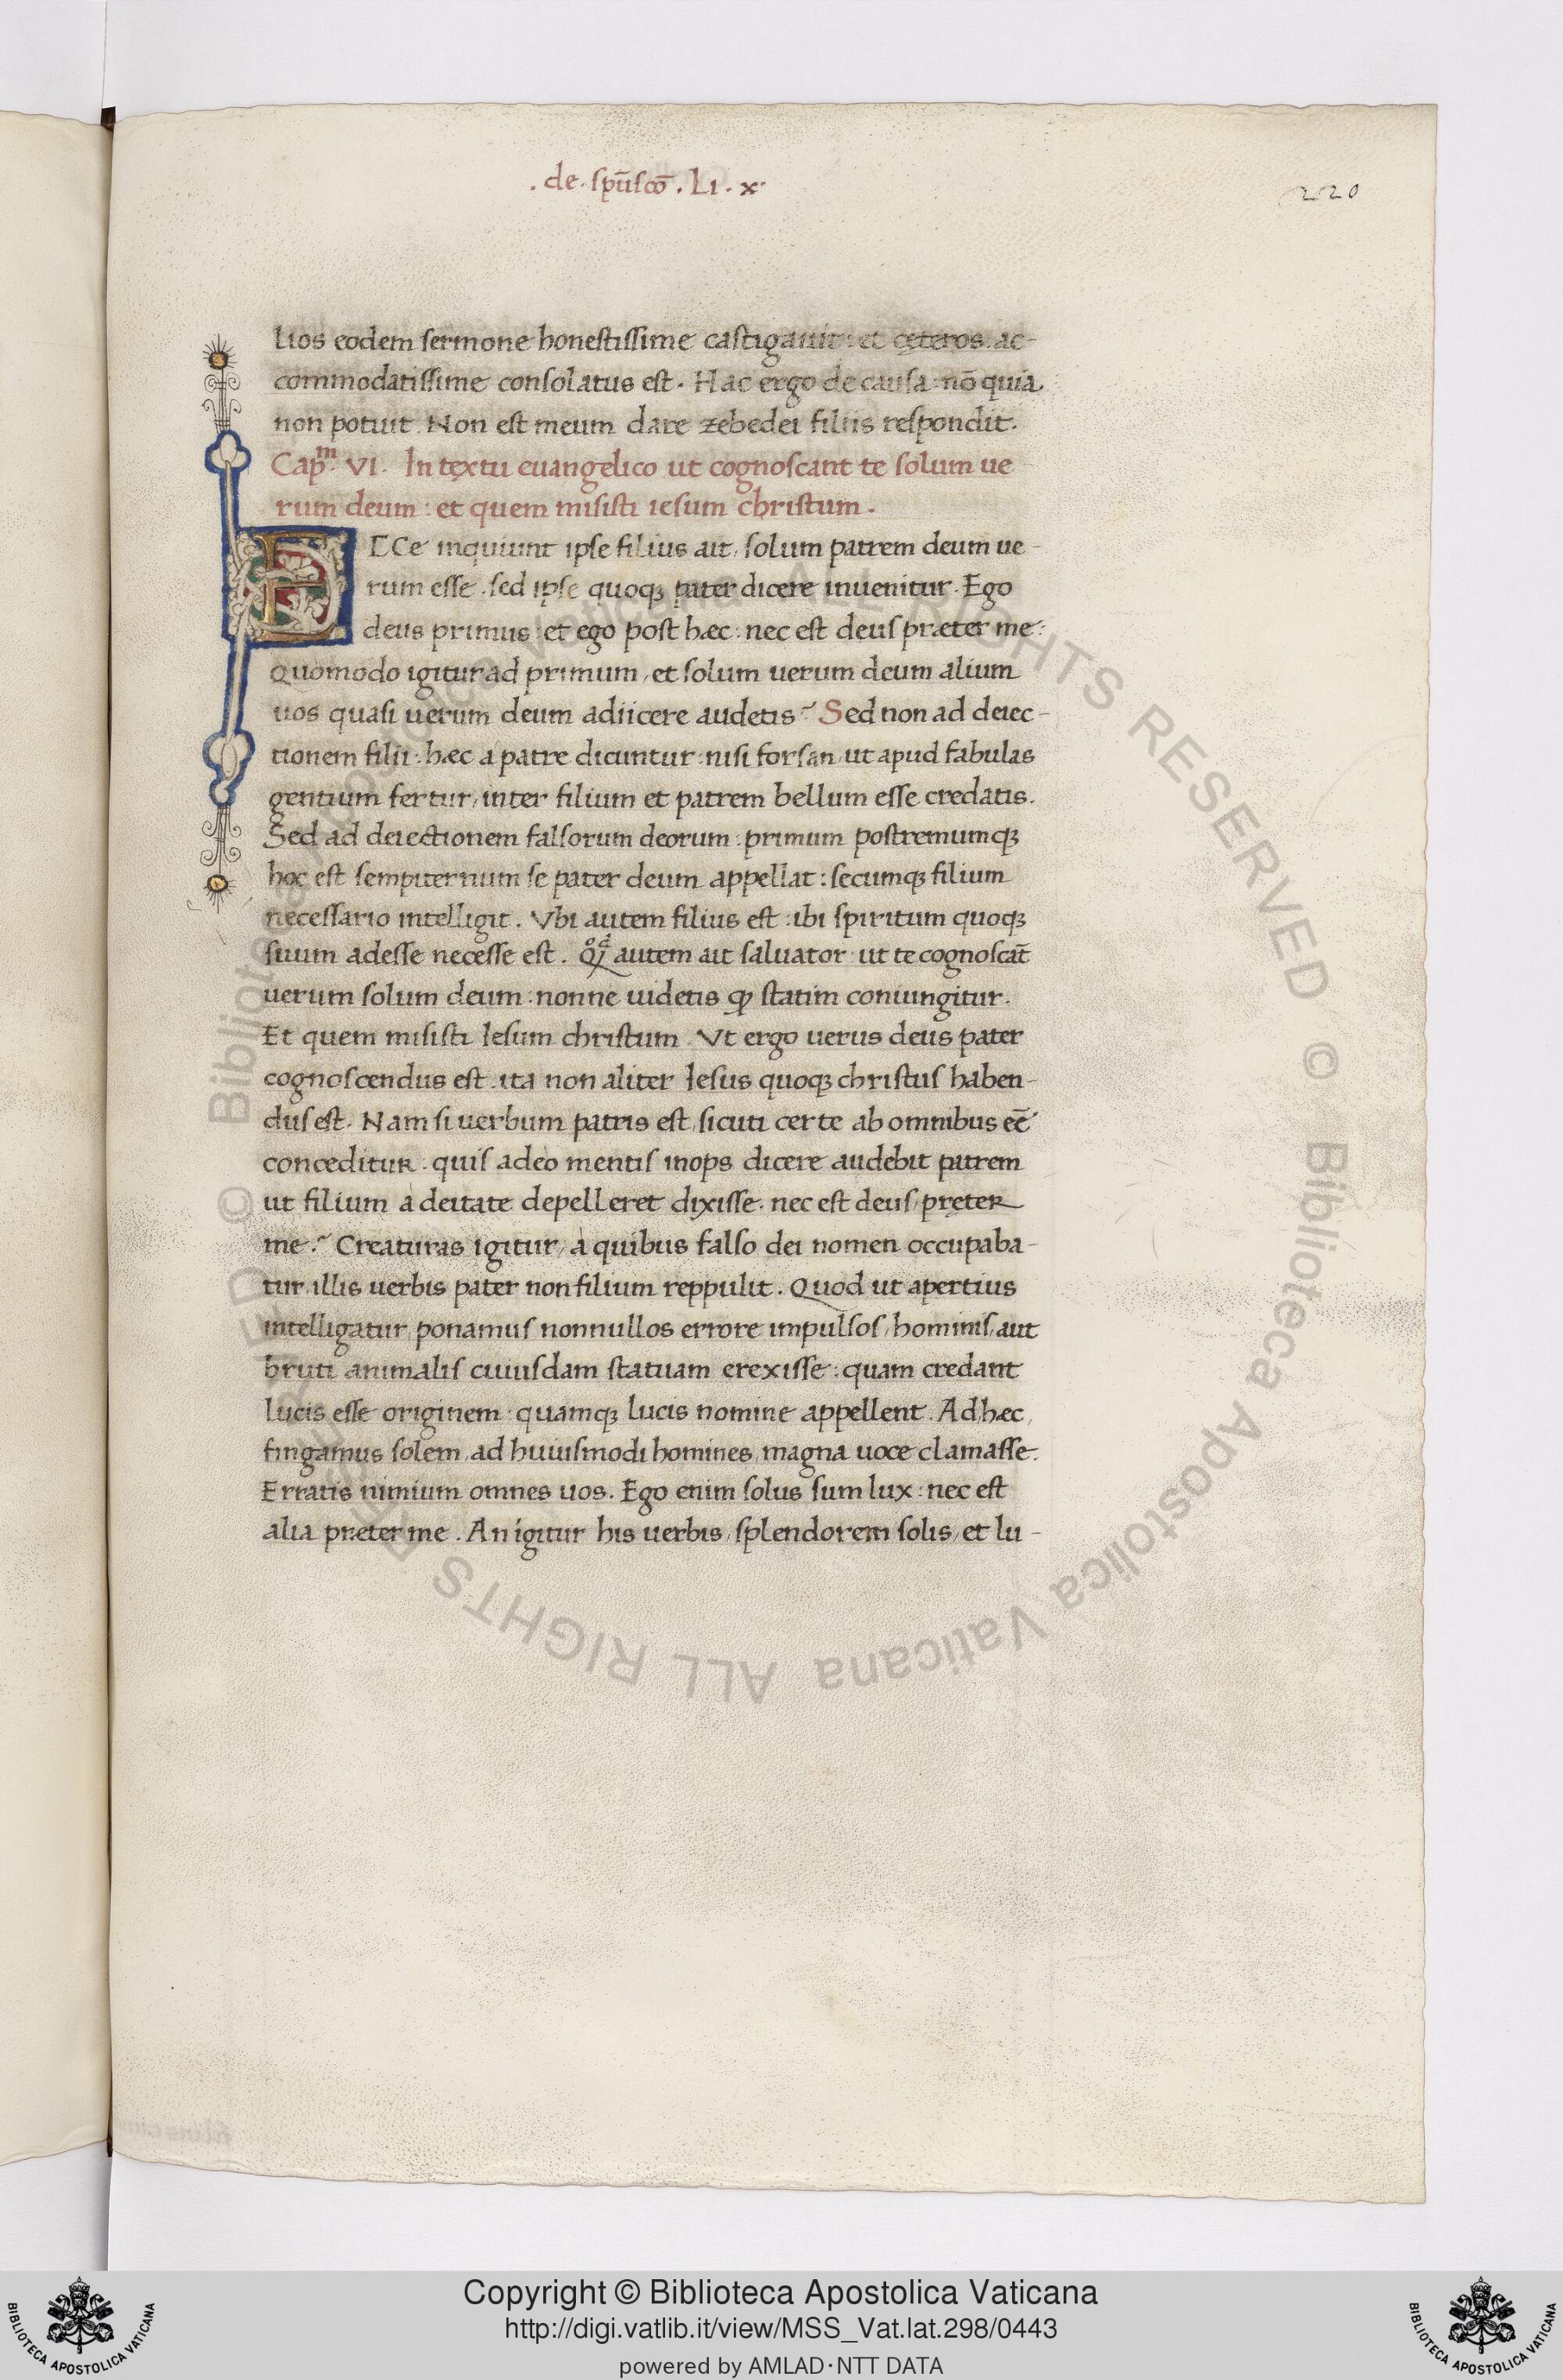 . de . spũscõ . Li . x .
220
lios eodem sermone honestissime castigauit : et cęteros ac-
commodatissime consolatus est . Hac ergo de causa : nõ quia
non potuit . Non est meum dare zebedei filiis respondit .
Capᵐ. VI . In textu euangelico ut cognoscant te solum ue
rum deum : et quem misisti iesum christum .
ECCe inquiunt ipse filius ait , solum patrem deum ue-
rum esse . sed ipse quoqꝫ pater dicere inuenitur . Ego
deus primus : et ego post hæc : nec est deus præter me :
Quomodo igitur ad primum , et solum uerum deum alium
uos quasi uerum deum adiicere audetis ? Sed non ad deiec-
tionem filii : hæc a patre dicuntur : nisi forsan , ut apud fabulas
gentium fertur , inter filium et patrem bellum esse credatis .
Sed ad deiectionem falsorum deorum : primum postremumqꝫ
hoc est sempiternum se pater deum appellat : secumqꝫ filium
necessario intelligit . Vbi autem filius est : ibi spiritum quoqꝫ
suum adesse necesse est . autem ait saluator ut te cognoscãt
uerum solum deum : nonne uidetis ꝙ statim coniungitur .
Et quem misisti Iesum christum . Vt ergo uerus deus pater
cognoscendus est . ita non aliter Iesus quoqꝫ christus haben-
dus est . Nam si uerbum patris est , sicuti certe ab omnibus eē
conceditur : quis adeo mentis inops dicere audebit patrem
ut filium a deitate depelleret dixisse . nec est deus , pręter
me ? Creaturas igitur , a quibus falso dei nomen occupaba-
tur , illis uerbis pater non filium reppulit . Quod ut apertius
intelligatur , ponamus nonnullos errore impulsos , hominis , aut
bruti animalis cuiusdam statuam erexisse : quam credant
lucis esse originem quamqꝫ lucis nomine appellent . Ad hæc ,
fingamus solem , ad huiusmodi homines , magna uoce clamasse .
Erratis nimium omnes uos . Ego enim solus sum lux : nec est
alia præter me . An igitur his uerbis , splendorem solis , et lu-
© Biblioteca Apostolica Vaticana ALL RIGHTS RESERVED © Biblioteca Apostolica Vaticana ALL RIGHTS RESERVED
Copyright © Biblioteca Apostolica Vaticana
http://digi.vatlib.it/view/MSS_Vat.lat.298/0443
powered by AMLAD·NTT DATA
BIBLIOTECA APOSTOLICA VATICANA
BIBLIOTECA APOSTOLICA VATICANA